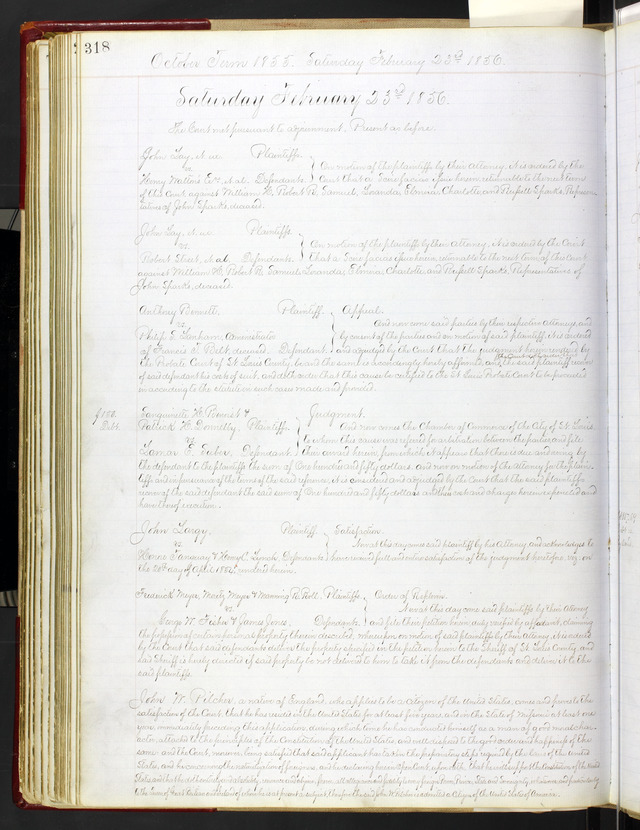 318
October Term 1855. Saturday February 23rd 1856.
Saturday February 23rd 1856.
The Court met pursuant to adjournment. Present as before.
John Lay, et ux Plaintiffs
vs. On motion of the plaintiffs by their Attorney, it is ordered by the
Defendants Court that a Scire facias issue herein returnable to the next term
of this Court, against William H. Robert B. Samuel, Charlotte, and Russell Sparks, Represen
tatives of John Sparks, deceased.
John Lay, et ux Plaintiffs
vs. On motion of the plaintiffs by their Attorney, it is ordered by the Court
Robert et al. Defendants. that a Scire facias issue herein, returnable to the next term of this Court
against William H. Robert B. Samuel, Charlotte, and Russell Sparks, Representatives of
John Sparks, deceased.
Anthony Bennett Plaintiff. Appeal.
vs. And now come said parties by their respective Attorneys, and
Philip E. Lanham, Administrator by consent of the parties and on motion of said plaintiff, it is ordered
of Francis deceased. Defendant. and adjudged by the Court that the judgment herein rendered by
the Probate Court of St. Louis County, be and the same is accordingly hereby affirmed, and the said plaintiff recover
of said defendant his costs of suit, and it is ordered that this cause be certified to the St. Louis Probate Court to be proceeded
in according to the statute in such cases made and provided.
$150. H. &
Debt. Patrick H. Donnelly, Plaintiffs. Judgment.
vs. And now comes the Chamber of Commerce of the City of St. Louis
to whom this cause was referred for arbitration between the parties, and file
Defendant. their award herein, from which it appears that there is due and owing by
the defendant to the plaintiffs the sum of One hundred and fifty dollars, and now on motion of the Attorney for the plain
tiffs and in pursuance of the terms of the said reference, it is considered and adjudged by the Court that the said plaintiffs
recover of the said defendant the said sum of One hundred and fifty dollars and their costs and charges herein expended and
have thereof execution.
John Plaintiff Satisfaction.
vs. Now at this day comes said plaintiff by his Attorney, and acknowledges to
& Henry C. Lynch, Defendants have received full and entire satisfaction of the judgment heretofore, viz, on
the 28th day of April 1854, rendered herein.
Frederick Meyer, Moritz Meyer & Plaintiffs Order of Replevin.
vs. Now at this day come said plaintiffs by their Attorney
George W. Fisher & James Jones, Defendants. and file their petition herein, duly verified by affidavit, claiming
the possession of certain personal property therein described. Whereupon on motion of said plaintiffs by their Attorney, it is ordered
by the Court that said defendants deliver the property specified in the petition herein to the Sheriff of St. Louis County, and
said Sheriff is hereby directed if said property be not delivered to him to take it from the defendants and deliver it to the
said plaintiffs.
John W. Pitcher, a native of England, who applies to be a citizen of the United States, comes and proves to the
satisfaction of the Court, that he has resided in the United States for at least five years, and in the State of Missouri at least one
year, immediately preceding this application, during which time he has conducted himself as a man of good moral char-
acter, attached to the principles of the Constitution of the United States, and well disposed to the good order and happiness of the
same: and the Court, moreover, being satisfied that said applicant has taken the preparatory steps required by the laws of the United
States, and he declaring here in Open Court, upon oath, that he will support the Constitution of the United
States, and that he doth absolutely and entirely renounce and abjure forever all allegiance and fidelity to every foreign Power, Prince, State and Sovereignty whatsoever, and particularly
to the Queen of Great Britain and Ireland of whom he was a subject, therefore the said John W. Pitcher is admitted a Citizen of the United States of America.